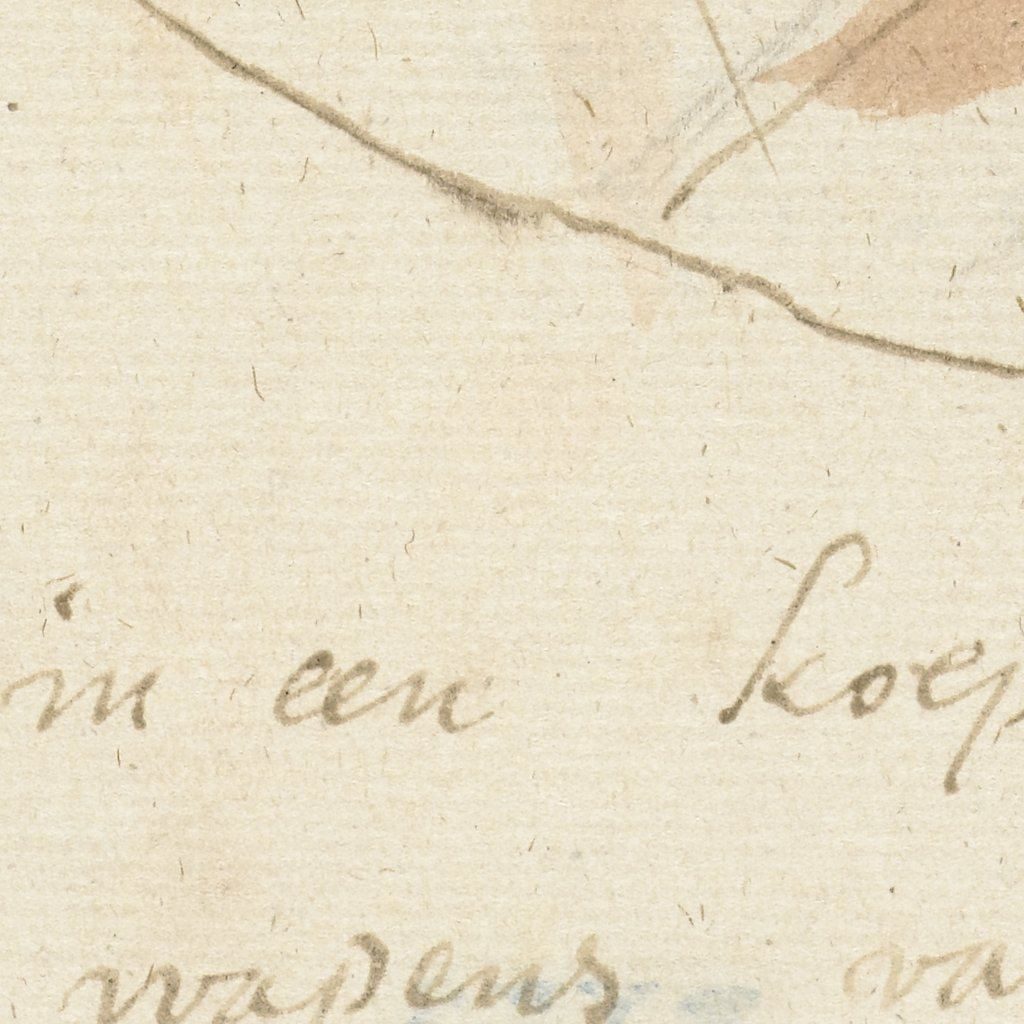 in een koep
wapens va